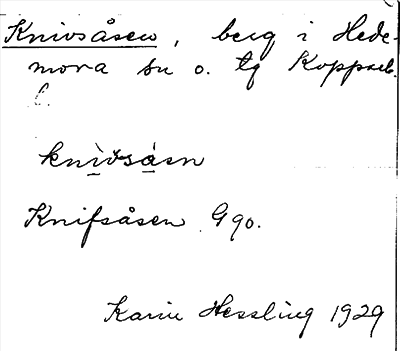 Knivsåsen, berg i Hede-
mora sn o. tg Kopparb.
l.
knivsåsn
Knifsåsen Ggo.
Karin Hessling 1929